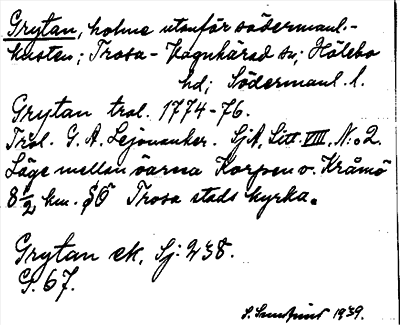 Grytan, holme utanför södermanl.-
kusten; Trosa-Vagnhärad sn; Hölebo
hd; Södermanl. l.
Grytan trol. 1774-76.
Trol. G. A. Lejonanker. SjA, Litt VIII, N:o 2.
Läge mellan öarna Korpen o. Kråmö
8 1/2 km. SÖ Trosa stads kyrka.
Grytan ek, Sj: 238.
S. 67.
1939.